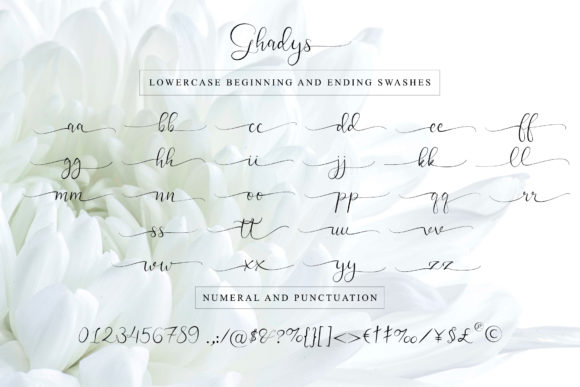 Ghadys
LOWERCASE BEGINNING AND ENDING SWASHES
aa bb cc dd ee ff
gg hh ii jj kk ll
mm nn oo pp qq rr
ss tt uu vv
ww xx yy zz
NUMERAL AND PUNCTUATION
0123456789 .,:/@$&?%{}[]<>€†‡‰/¥$£®©